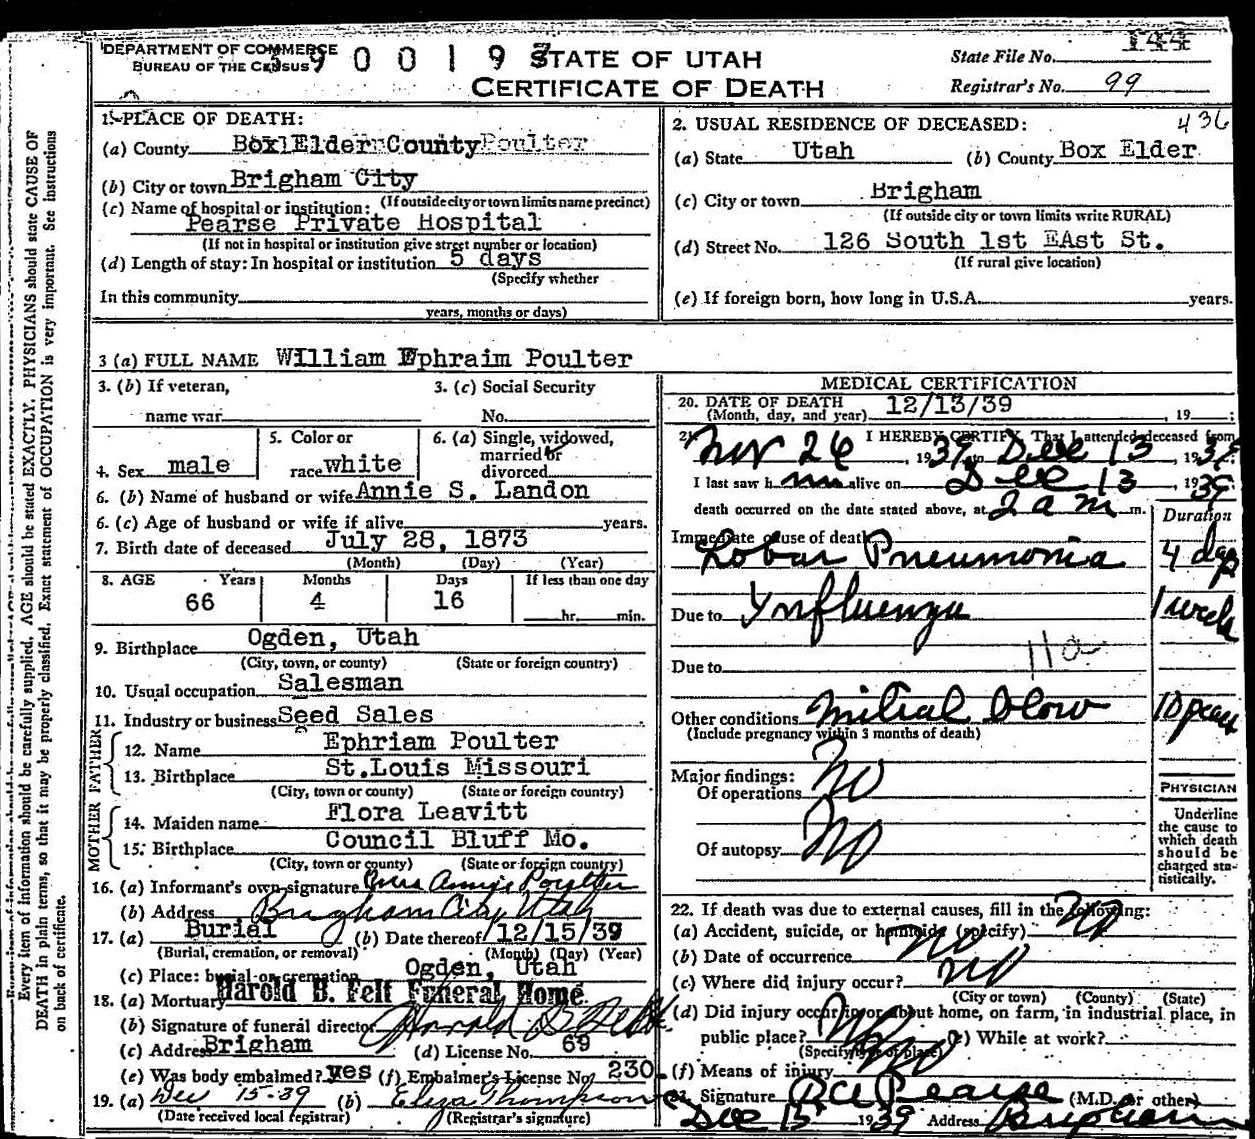 DEPARTMENT OF COMMERCE
BUREAU OF THE CENSUS
3 9 0 0 1 9 7
STATE OF UTAH
CERTIFICATE OF DEATH
State File No. 144
Registrar's No. 99
436
Every item of information should be carefully supplied. AGE should be stated EXACTLY. PHYSICIANS should state CAUSE OF
DEATH in plain terms, so that it may be properly classified. Exact statement of OCCUPATION is very important. See instructions
on back of certificate.
1. PLACE OF DEATH:
(a) County Box Elder County Poulter
(b) City or town Brigham City
(If outside city or town limits name precinct)
(c) Name of hospital or institution:
Pearse Private Hospital
(If not in hospital or institution give street number or location)
(d) Length of stay: In hospital or institution 5 days
(Specify whether
In this community
years, months or days)
2. USUAL RESIDENCE OF DECEASED:
(a) State Utah (b) County Box Elder
(c) City or town Brigham
(If outside city or town limits write RURAL)
(d) Street No. 126 South 1st EAst St.
(If rural give location)
(e) If foreign born, how long in U.S.A. years.
3 (a) FULL NAME William Ephraim Poulter
3. (b) If veteran,
name war
3. (c) Social Security
No.
4. Sex male
5. Color or
race white
6. (a) Single, widowed,
married or
divorced
6. (b) Name of husband or wife Annie S. Landon
6. (c) Age of husband or wife if alive years.
7. Birth date of deceased July 28, 1873
(Month) (Day) (Year)
8. AGE Years Months Days If less than one day
66 4 16 hr. min.
9. Birthplace Ogden, Utah
(City, town, or county) (State or foreign country)
10. Usual occupation Salesman
11. Industry or business Seed Sales
FATHER
12. Name Ephriam Poulter
13. Birthplace St.Louis Missouri
(City, town or county) (State or foreign country)
MOTHER
14. Maiden name Flora Leavitt
15. Birthplace Council Bluff Mo.
(City, town or county) (State or foreign country)
16. (a) Informant's own signature Mrs Annie Poulter
(b) Address Brigham City Utah
17. (a) Burial (b) Date thereof 12/15/39
(Burial, cremation, or removal) (Month) (Day) (Year)
(c) Place: burial or cremation Ogden, Utah
18. (a) Mortuary Harold B. Felt Funeral Home.
(b) Signature of funeral director Harold B Felt
(c) Address Brigham (d) License No. 69
(e) Was body embalmed? yes (f) Embalmer's License No. 230.
19. (a) Dec 15-39 (b) Eliza Thompson
(Date received local registrar) (Registrar's signature)
MEDICAL CERTIFICATION
20. DATE OF DEATH
(Month, day, and year) 12/13/39 , 19 ;
21. I HEREBY CERTIFY, That I attended deceased from
Nov 26 , 1939, to Dec 13 , 1939
I last saw him alive on Dec 13 , 1939
death occurred on the date stated above, at 2 a m m.
Duration
Immediate cause of death
Lobar Pneumonia 4 days
Due to Ynfluenza 1 week
11a
Due to
Other conditions Mitral blow 10 years
(Include pregnancy within 3 months of death)
Major findings:
Of operations No
Of autopsy No
PHYSICIAN
Underline
the cause to
which death
should be
charged sta-
tistically.
22. If death was due to external causes, fill in the following:
(a) Accident, suicide, or homicide (specify) No
(b) Date of occurrence no
(c) Where did injury occur? no
(City or town) (County) (State)
(d) Did injury occur in or about home, on farm, in industrial place, in
public place? No (e) While at work?
(Specify type of place)
(f) Means of injury No
23. Signature Pearse (M.D. or other)
Dec 15 1939 Address Brigham